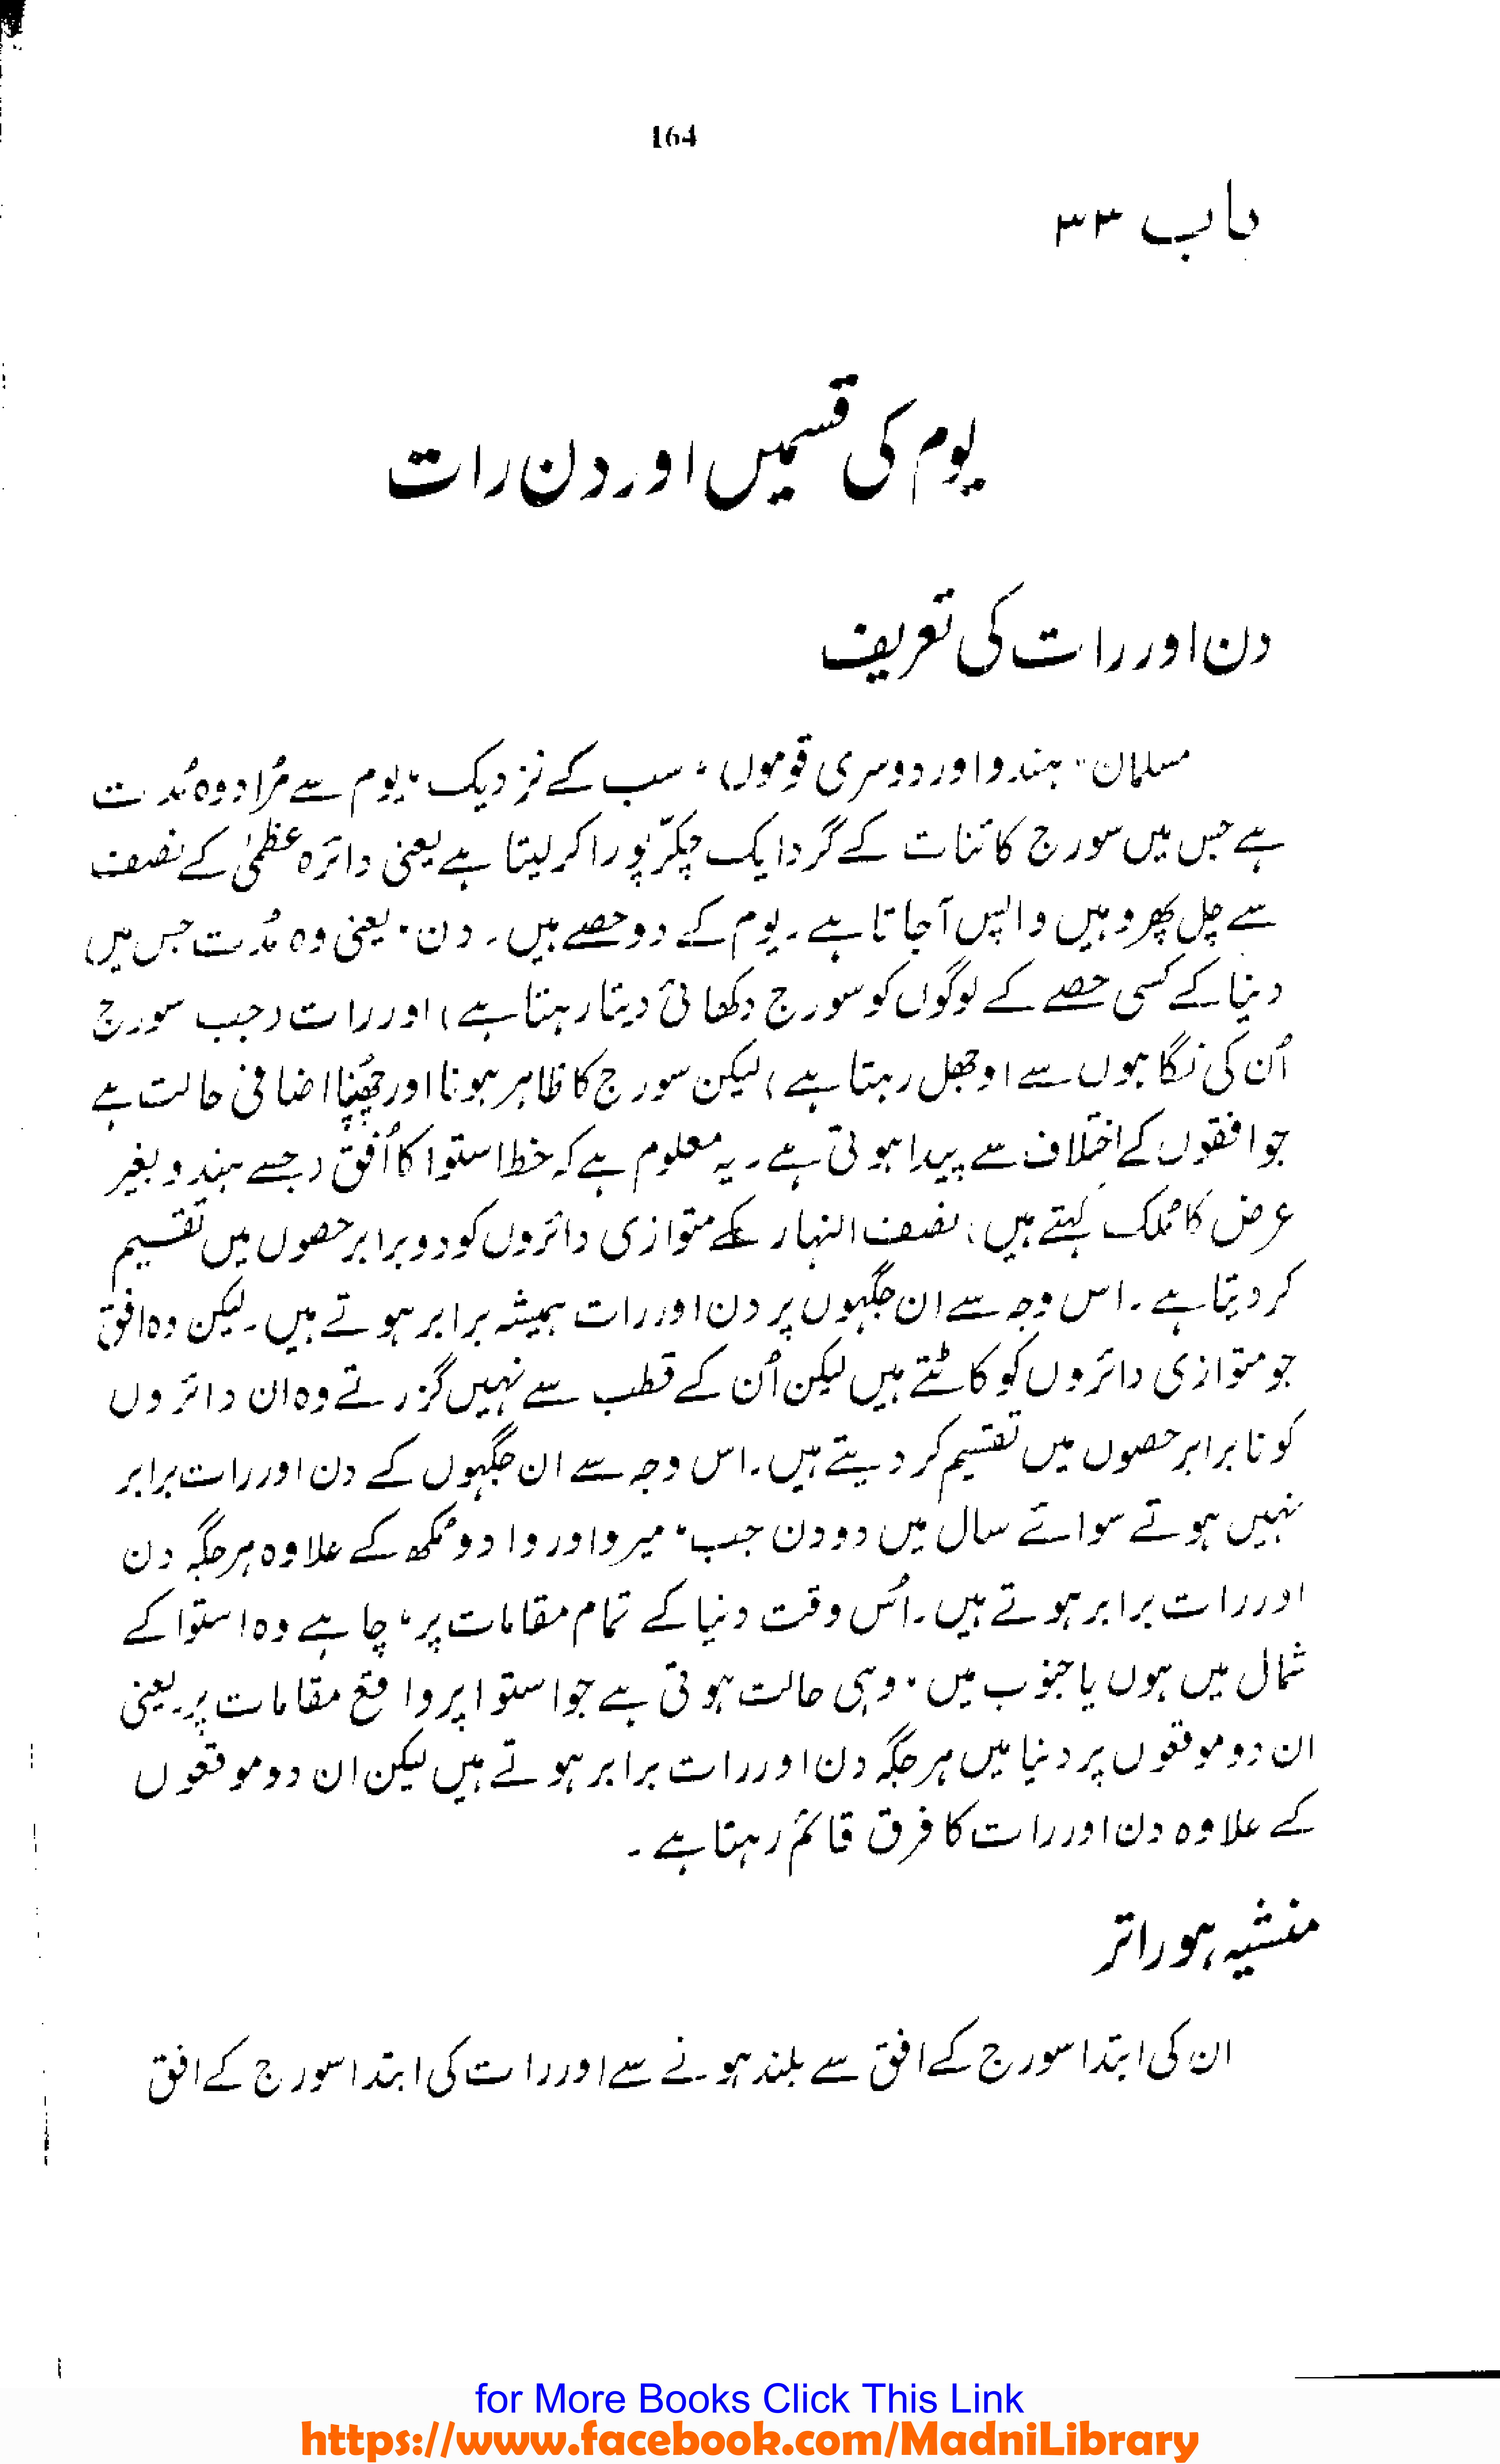 164
باب ۳۳
یوم کی قسمیں اور دن رات
دن اور رات کی تعریف
مسلمان، ہندو اور دوسری قوموں، سب کے نزدیک، یوم سے مُراد وہ مُدت
ہے جس میں سورج کائنات کے گرد ایک چکّر پورا کر لیتا ہے یعنی دائرہ عظمیٰ کے نصف
سے چل پھر وہیں واپس آجاتا ہے۔ یوم کے دو حصے ہیں۔ دن، یعنی وہ مُدت جس میں
دنیا کے کسی حصے کے لوگوں کو سورج دکھائی دیتا رہتا ہے) اور رات (جب سورج
اُن کی نگاہوں سے اوجھل رہتا ہے) لیکن سورج کا ظاہر ہونا اور چھُپنا اضافی حالت ہے
جو افقوں کے اختلاف سے پیدا ہوتی ہے۔ یہ معلوم ہے کہ خط استوا کا اُفق (جسے ہندو بغیر
عرض کا مُلک کہتے ہیں) نصف النہار کے متوازی دائروں کو دو برابر حصوں میں تقسیم
کر دیتا ہے۔ اس وجہ سے ان جگہوں پر دن اور رات ہمیشہ برابر ہوتے ہیں۔ لیکن وہ افق
جو متوازی دائروں کو کاٹتے ہیں لیکن اُن کے قطب سے نہیں گزرتے وہ ان دائروں
کو نابرابر حصوں میں تقسیم کر دیتے ہیں۔ اس وجہ سے ان جگہوں کے دن اور رات برابر
نہیں ہوتے سوائے سال میں دو دن جب، میرو اور وادومکھ کے علاوہ ہر جگہ دن
اور رات برابر ہوتے ہیں۔ اُس وقت دنیا کے تمام مقامات پر، چاہے وہ استوا کے
شمال میں ہوں یا جنوب میں، وہی حالت ہوتی ہے جو استوا پر واقع مقامات پر۔ یعنی
ان دو موقعوں پر دنیا میں ہر جگہ دن اور رات برابر ہوتے ہیں لیکن ان دو موقعوں
کے علاوہ دن اور رات کا فرق قائم رہتا ہے۔
منشیہ ہوراتر
ان کی ابتدا سورج کے افق سے بلند ہونے سے اور رات کی ابتدا سورج کے افق
for More Books Click This Link
https://www.facebook.com/MadniLibrary